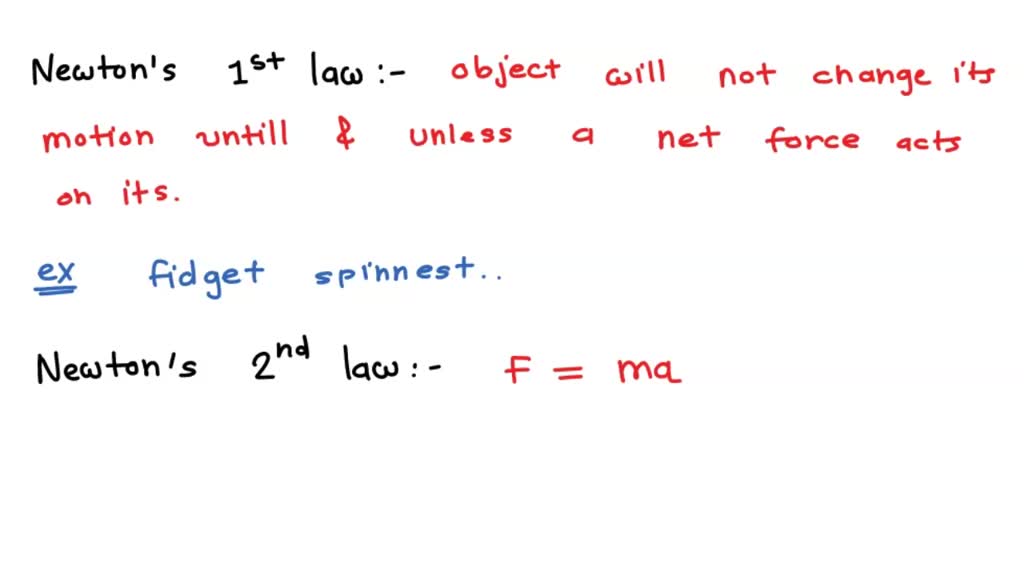 Newton's 1st law :- object will not change its
motion untill & unless a net force acts
on its.
ex fidget spinnest..
Newton's 2nd law :- F = ma